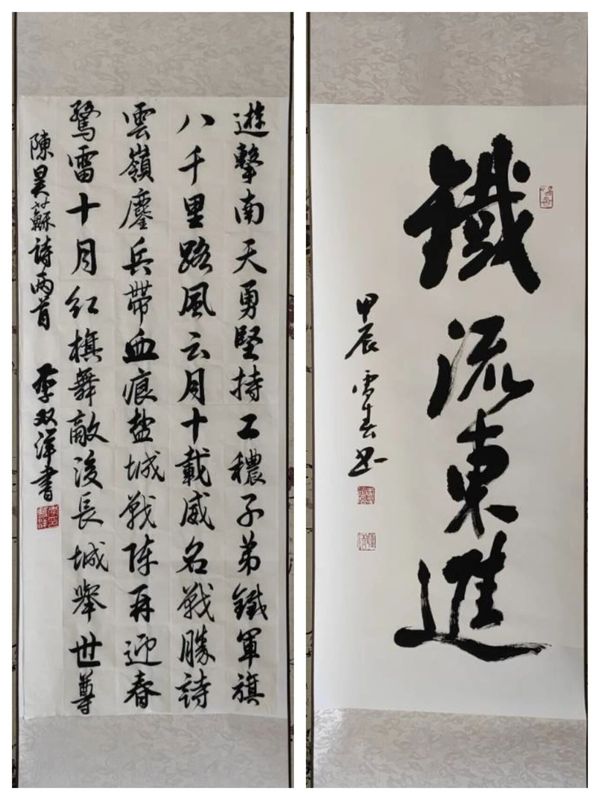 遊擊南天勇堅持工穠子弟鐵軍旗
八千里路風云月十載威名戰勝詩
雲嶺鏖兵帶血痕盐城戰陣再迎春
驚雷十月紅旗舞敵後長城舉世尊
陳昊蘇詩兩首 李双洋書
鐵流東進
甲辰 书